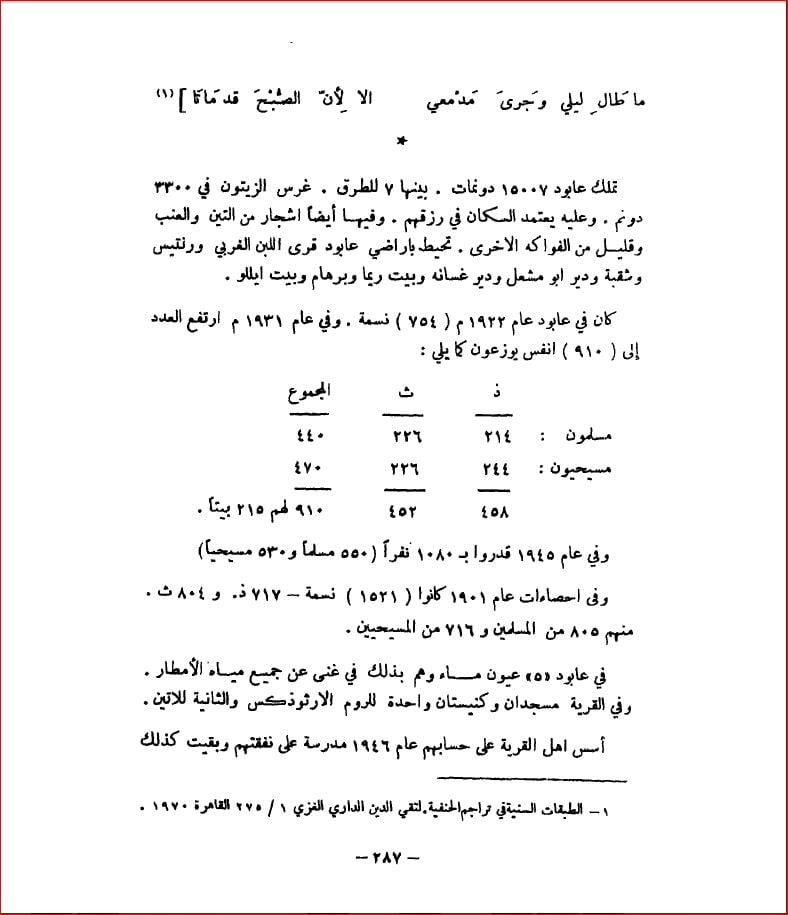 ما طَالِ ليلي وَجرىَ مَدْمعي الا لِأنّ الصُّبْحَ قد مَاتَا ](١)
*
تملك عابود ١٥٠٠٧ دونمات . بينها ٧ للطرق . غرس الزيتون في ٣٣٠٠
دونم . وعليه يعتمد السكان في رزقهم . وفيها أيضاً اشجار من التين والعنب
وقليل من الفواكه الاخرى . تحيط باراضي عابود قرى اللبن الغربي ورنتيس
وشقبة ودير ابو مشعل ودير غسانه وبيت ريما وبرهام وبيت ايللو .
كان في عابود عام ١٩٢٢ م ( ٧٥٤ ) نسمة . وفي عام ١٩٣١ م ارتفع العدد
إلى ( ٩١٠ ) انفس يوزعون كما يلي :
ذ ث المجموع
مسلمون : ٢١٤ ٢٢٦ ٤٤٠
مسيحيون : ٢٤٤ ٢٢٦ ٤٧٠
٤٥٨ ٤٥٢ ٩١٠ لهم ٢١٥ بيتاً .
وفي عام ١٩٤٥ قدروا بـ ١٠٨٠ نفراً (٥٥٠ مسلماً و٥٣٠ مسيحياً)
وفى احصاءات عام ١٩٠١ كانوا ( ١٥٢١ ) نسمة – ٧١٧ ذ. و ٨٠٤ ث .
منهم ٨٠٥ من المسلمين و ٧١٦ من المسيحيين .
في عابود «٥» عيون مـاء وهم بذلك في غنى عن جميع ميـاه الأمطار .
وفي القرية مسجدان وكنيستان واحدة للروم الارثوذكس والثانية للاتين .
أسس اهل القرية على حسابهم عام ١٩٤٦ مدرسة على نفقتهم وبقيت كذلك
١ – الطبقات السنية في تراجم الحنفية. لتقي الدين الداري الغزي ١ / ٢٧٥ القاهرة ١٩٧٠ .
– ٢٨٧ –